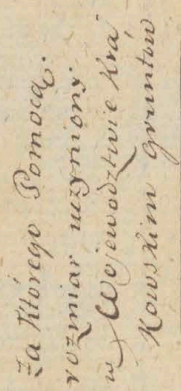 Za Którego Pomocą.
rozmiar uczyniony.
w Wojewodztwie Kra
Kowskim gruntow